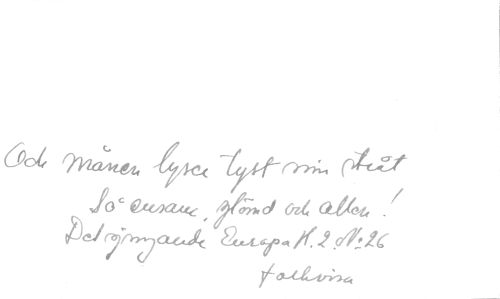 Och månen lyser tyst min stråt
Så ensam, glömd och allen!
Det sjungande Europa H. 2. No 26
folkvisa